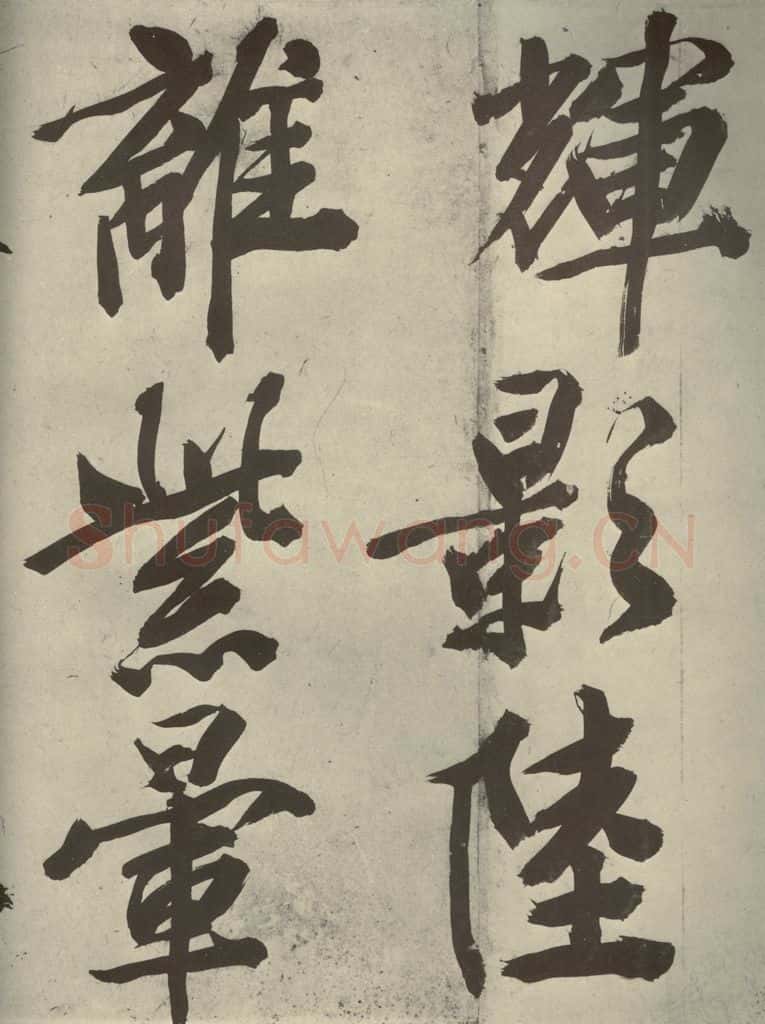 輝影陸
離紫暈
Shufawang.CN